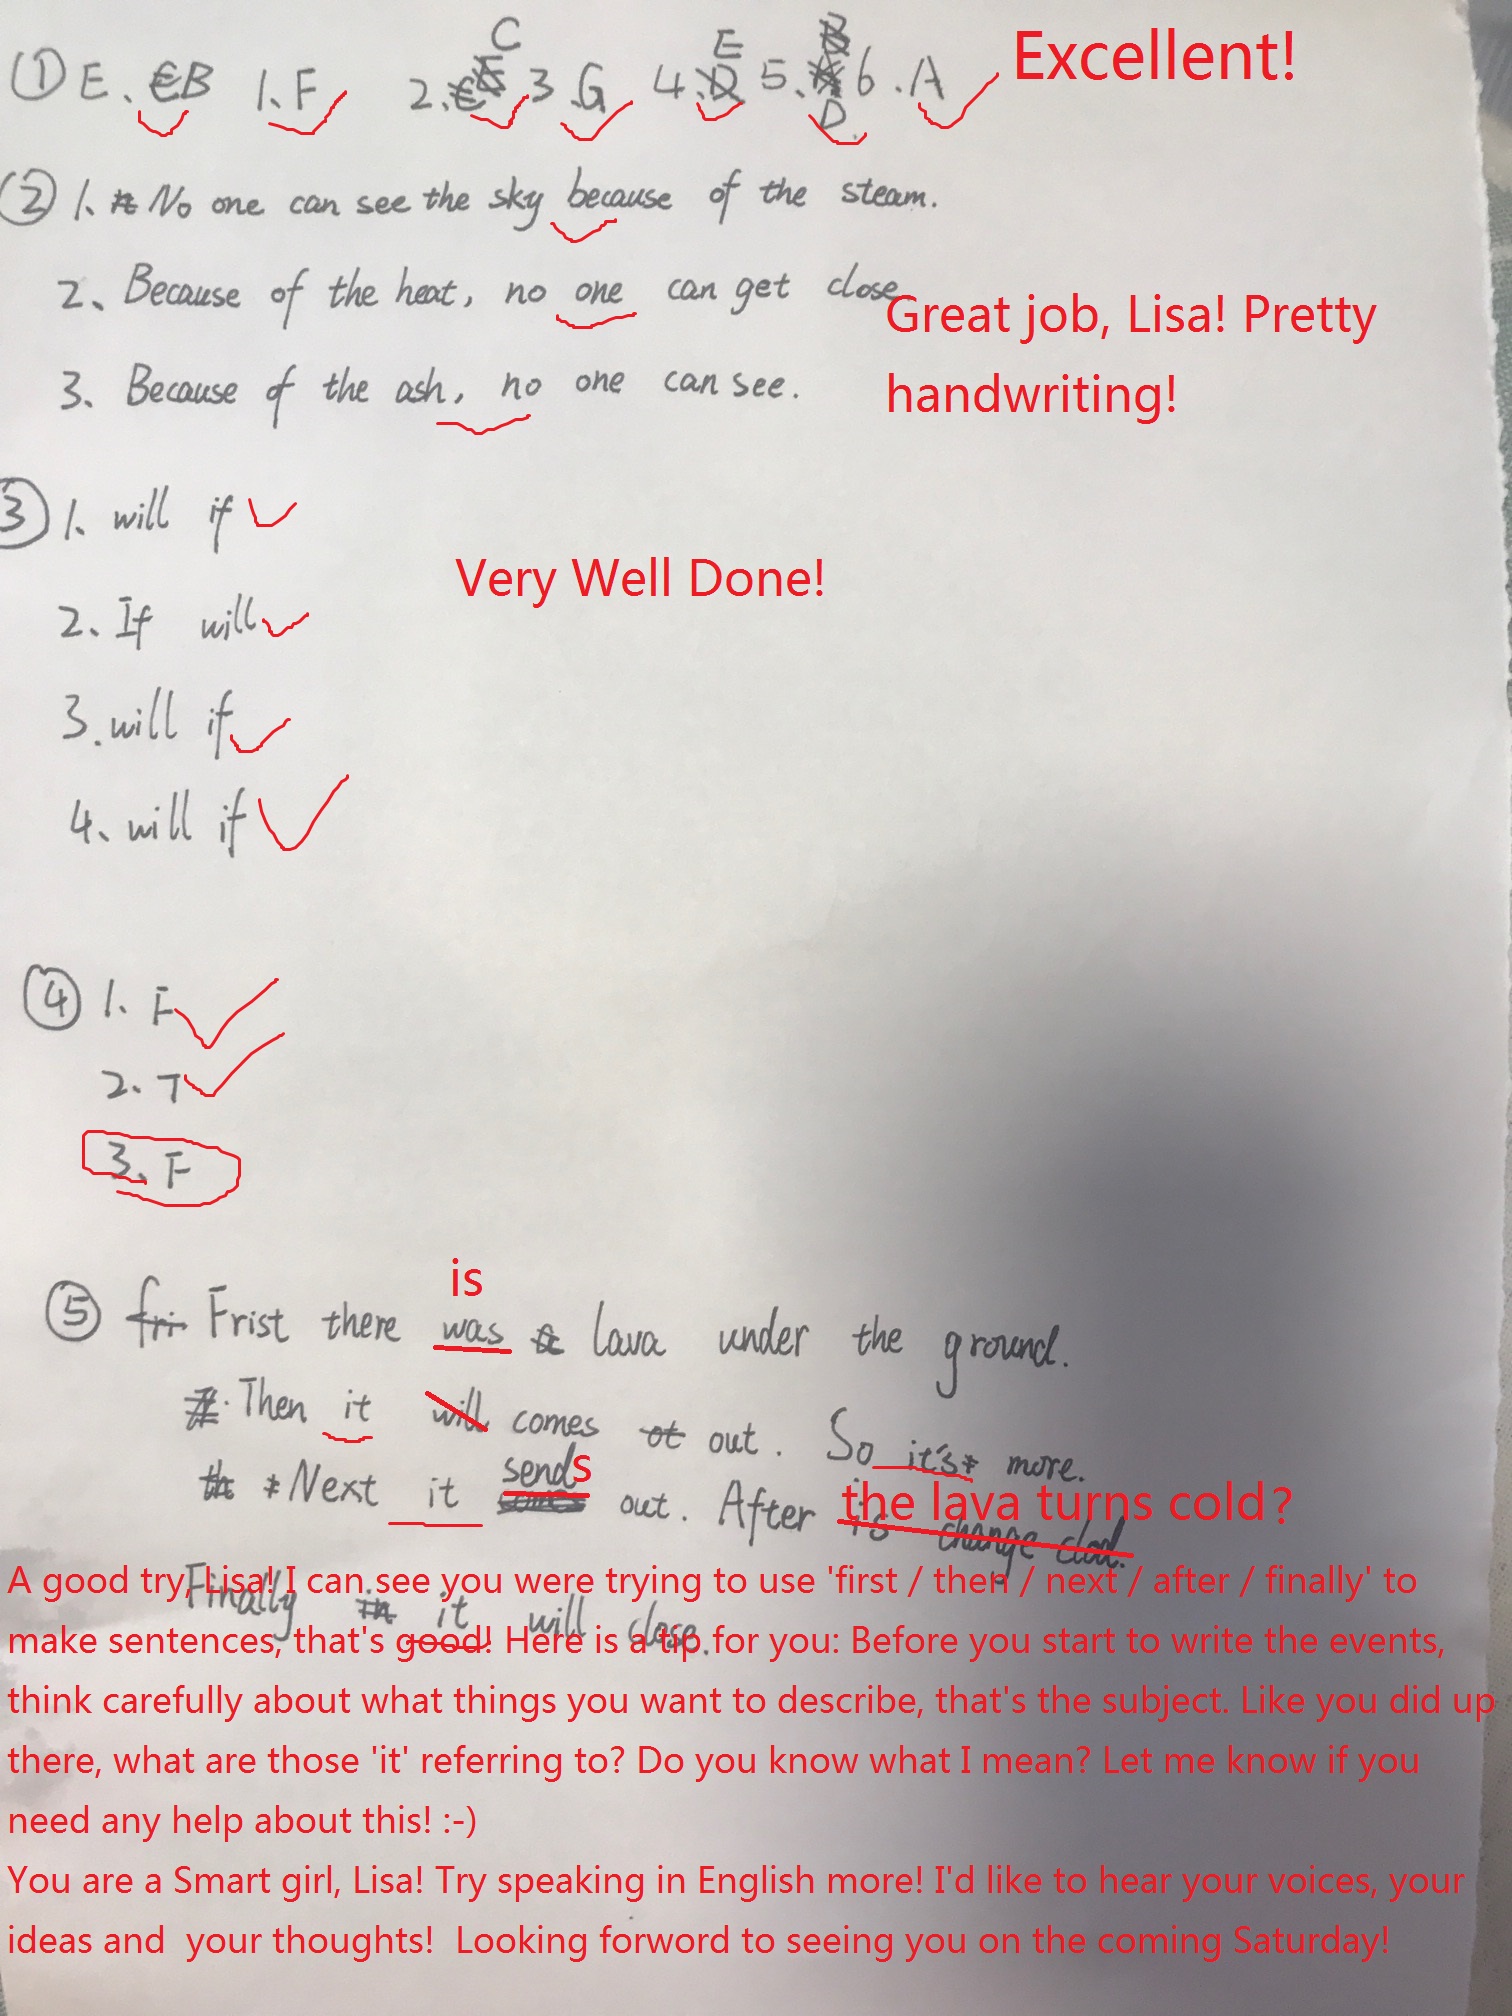 ① E. B 1. F 2. C 3. G 4. E 5. D 6. A Excellent!
② 1. No one can see the sky because of the steam.
2. Because of the heat, no one can get close
Great job, Lisa! Pretty
handwriting!
3. Because of the ash, no one can see.
③ 1. will if
Very Well Done!
2. If will
3. will if
4. will if
④ 1. F
2. T
3. F
is
⑤ fri Frist there was a lava under the ground.
Then it will comes ot out. So it's more.
th Next it sends out. After is change clod.
the lava turns cold?
Finally in it will close.
A good try, Lisa! I can see you were trying to use 'first / then / next / after / finally' to
make sentences, that's good! Here is a tip for you: Before you start to write the events,
think carefully about what things you want to describe, that's the subject. Like you did up
there, what are those 'it' referring to? Do you know what I mean? Let me know if you
need any help about this! :-)
You are a Smart girl, Lisa! Try speaking in English more! I'd like to hear your voices, your
ideas and your thoughts! Looking forword to seeing you on the coming Saturday!